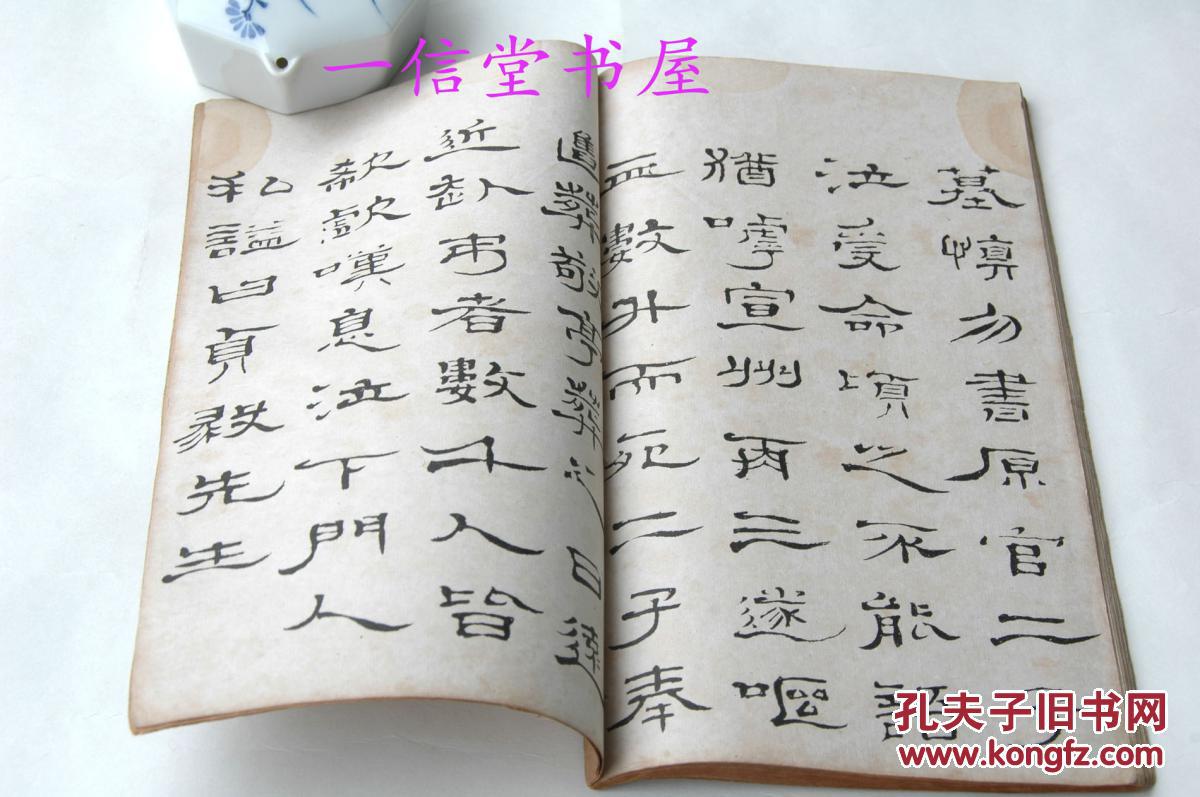 一信堂书屋
墓慎勿書原官二子
泣受命頃之不能語
猶嘑宣州再三遂嘔
血數升而死二子奉
遺葬敬亭葬之日遠
近赴弔者數千人皆
欷歔嘆息泣下門人
私謚曰貞毅先生
孔夫子旧书网
www.kongfz.com